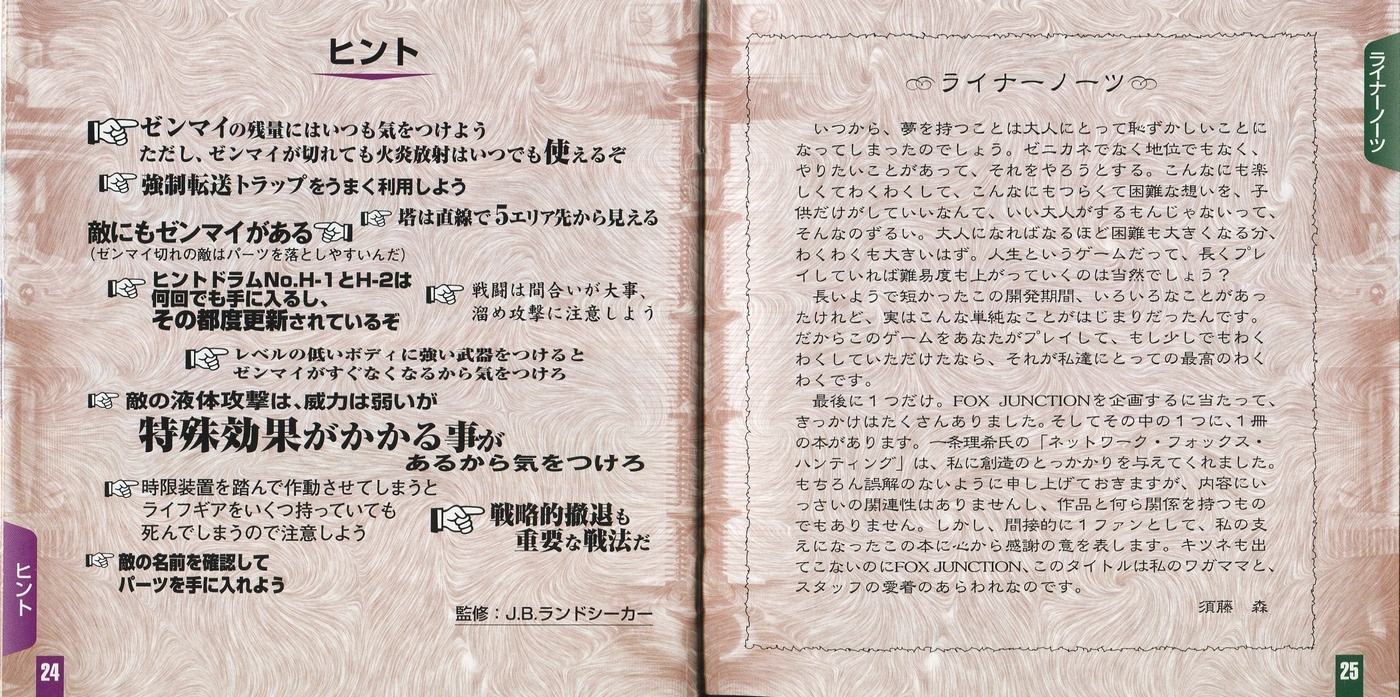 ヒント
ゼンマイの残量にはいつも気をつけよう
ただし、ゼンマイが切れても火炎放射はいつでも使えるぞ
強制転送トラップをうまく利用しよう
塔は直線で5エリア先から見える
敵にもゼンマイがある
(ゼンマイ切れの敵はパーツを落としやすいんだ)
ヒントドラムNo.H-1とH-2は
何回でも手に入るし、
その都度更新されているぞ
戦闘は間合いが大事、
溜め攻撃に注意しよう
レベルの低いボディに強い武器をつけると
ゼンマイがすぐなくなるから気をつけろ
敵の液体攻撃は、威力は弱いが
特殊効果がかかる事が
あるから気をつけろ
時限装置を踏んで作動させてしまうと
ライフギアをいくつ持っていても
死んでしまうので注意しよう
戦略的撤退も
重要な戦法だ
敵の名前を確認して
パーツを手に入れよう
監修：J.B.ランドシーカー
ヒント
24
ライナーノーツ
いつから、夢を持つことは大人にとって恥ずかしいことに
なってしまったのでしょう。ゼニカネでなく地位でもなく、
やりたいことがあって、それをやろうとする。こんなにも楽
しくてわくわくして、こんなにもつらくて困難な想いを、子
供だけがしていいなんて、いい大人がするもんじゃないって、
そんなのずるい。大人になればなるほど困難も大きくなる分、
わくわくも大きいはず。人生というゲームだって、長くプレ
イしていれば難易度も上がっていくのは当然でしょう？
長いようで短かったこの開発期間、いろいろなことがあっ
たけれど、実はこんな単純なことがはじまりだったんです。
だからこのゲームをあなたがプレイして、もし少しでもわく
わくしていただけたなら、それが私達にとっての最高のわく
わくです。
最後に１つだけ。FOX JUNCTIONを企画するに当たって、
きっかけはたくさんありました。そしてその中の１つに、１冊
の本があります。一条理希氏の「ネットワーク・フォックス・
ハンティング」は、私に創造のとっかかりを与えてくれました。
もちろん誤解のないように申し上げておきますが、内容にい
っさいの関連性はありませんし、作品と何ら関係を持つもの
でもありません。しかし、間接的に１ファンとして、私の支
えになったこの本に心から感謝の意を表します。キツネも出
てこないのにFOX JUNCTION、このタイトルは私のワガママと、
スタッフの愛着のあらわれなのです。
須藤　森
ライナーノーツ
25